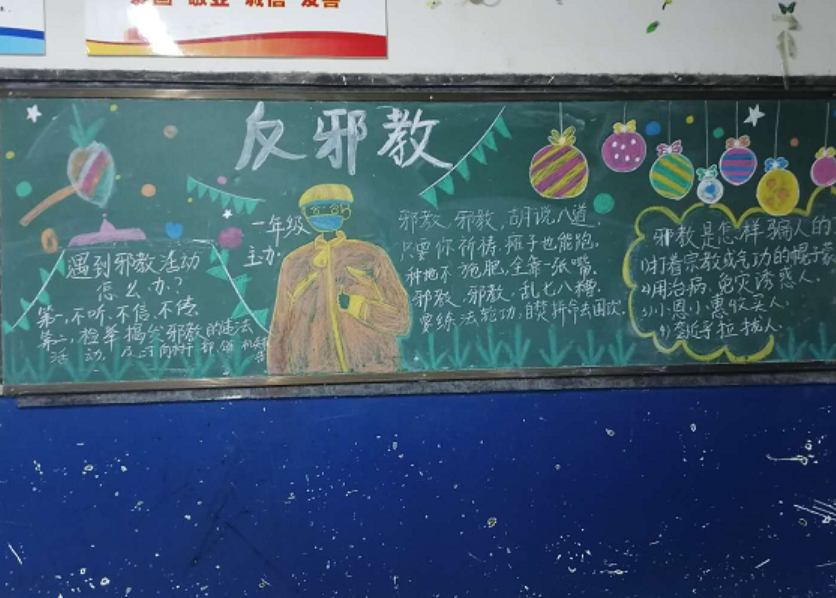 敬业 诚信 友善
反邪教
遇到邪教活动
怎么办?
第一,不听、不信、不传
第二,检举揭发邪教的违法
活动,
一年级
主办
邪教,邪教,胡说八道
只要你祈祷,瘫子也能跑,
种地不施肥,全靠一张嘴,
邪教,邪教,乱七八糟,
要练法轮功,自焚拼命去
邪教是怎样骗人的
1)打着宗教或气功的帽子
2)用治病,免灾诱惑人.
3)小恩小惠收买人.
4)套近乎拉拢人.